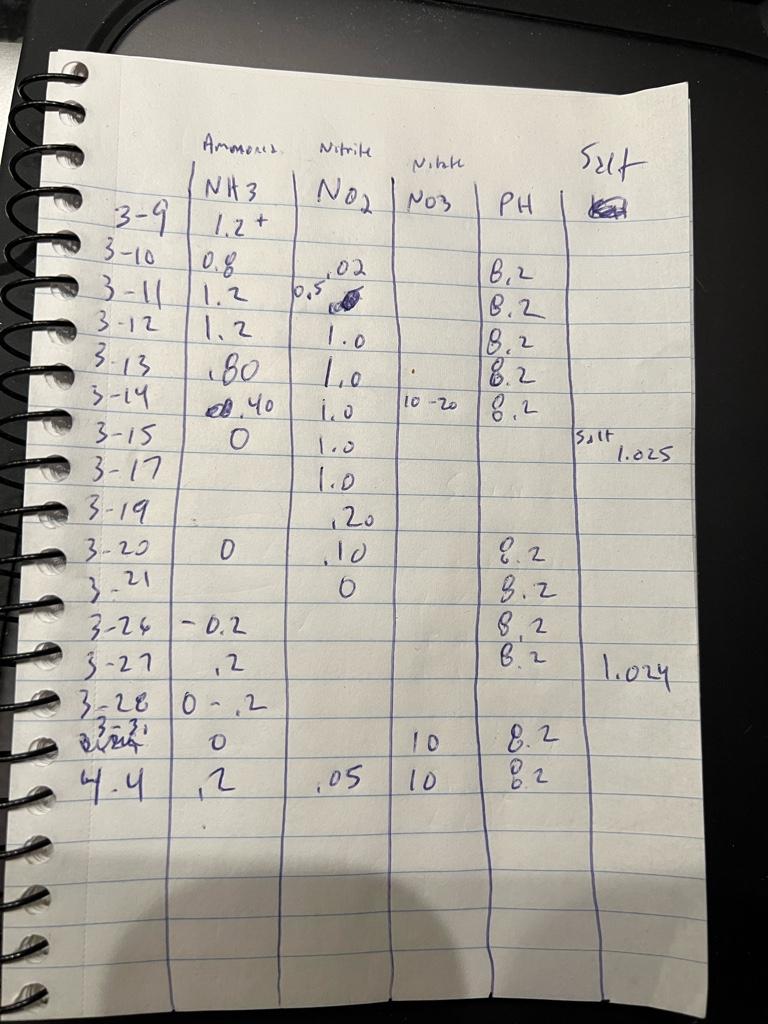 Ammonia Nitrite Nitrate Salt
NH3 NO2 NO3 PH
3-9 1.2+
3-10 0.8 .02 8.2
3-11 1.2 0.5 8.2
3-12 1.2 1.0 8.2
3-13 .80 1.0 8.2
3-14 .40 1.0 10-20 8.2
3-15 0 1.0 Salt 1.025
3-17 1.0
3-19 .20
3-20 0 .10 8.2
3-21 0 8.2
3-26 - 0.2 8.2
3-27 .2 8.2 1.024
3-28 0 - .2
3-31 0 10 8.2
4.4 .2 .05 10 8.2